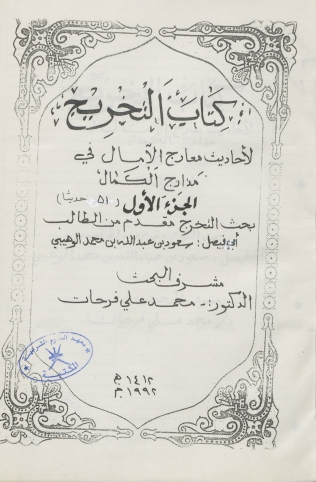 كتاب التخريج
لأحاديث معارج الآمال في
مدارج الكمال
الجزء الأول (٥١ حديثا)
بحث التخرج مقدم من الطالب
أبي فيصل: سعود بن عبدالله بن محمد الوهيبي
مشرف البحث
الدكتور:- محمد علي فرحات
معهد
المكتبة
١٤١٢ هـ
١٩٩٢ م